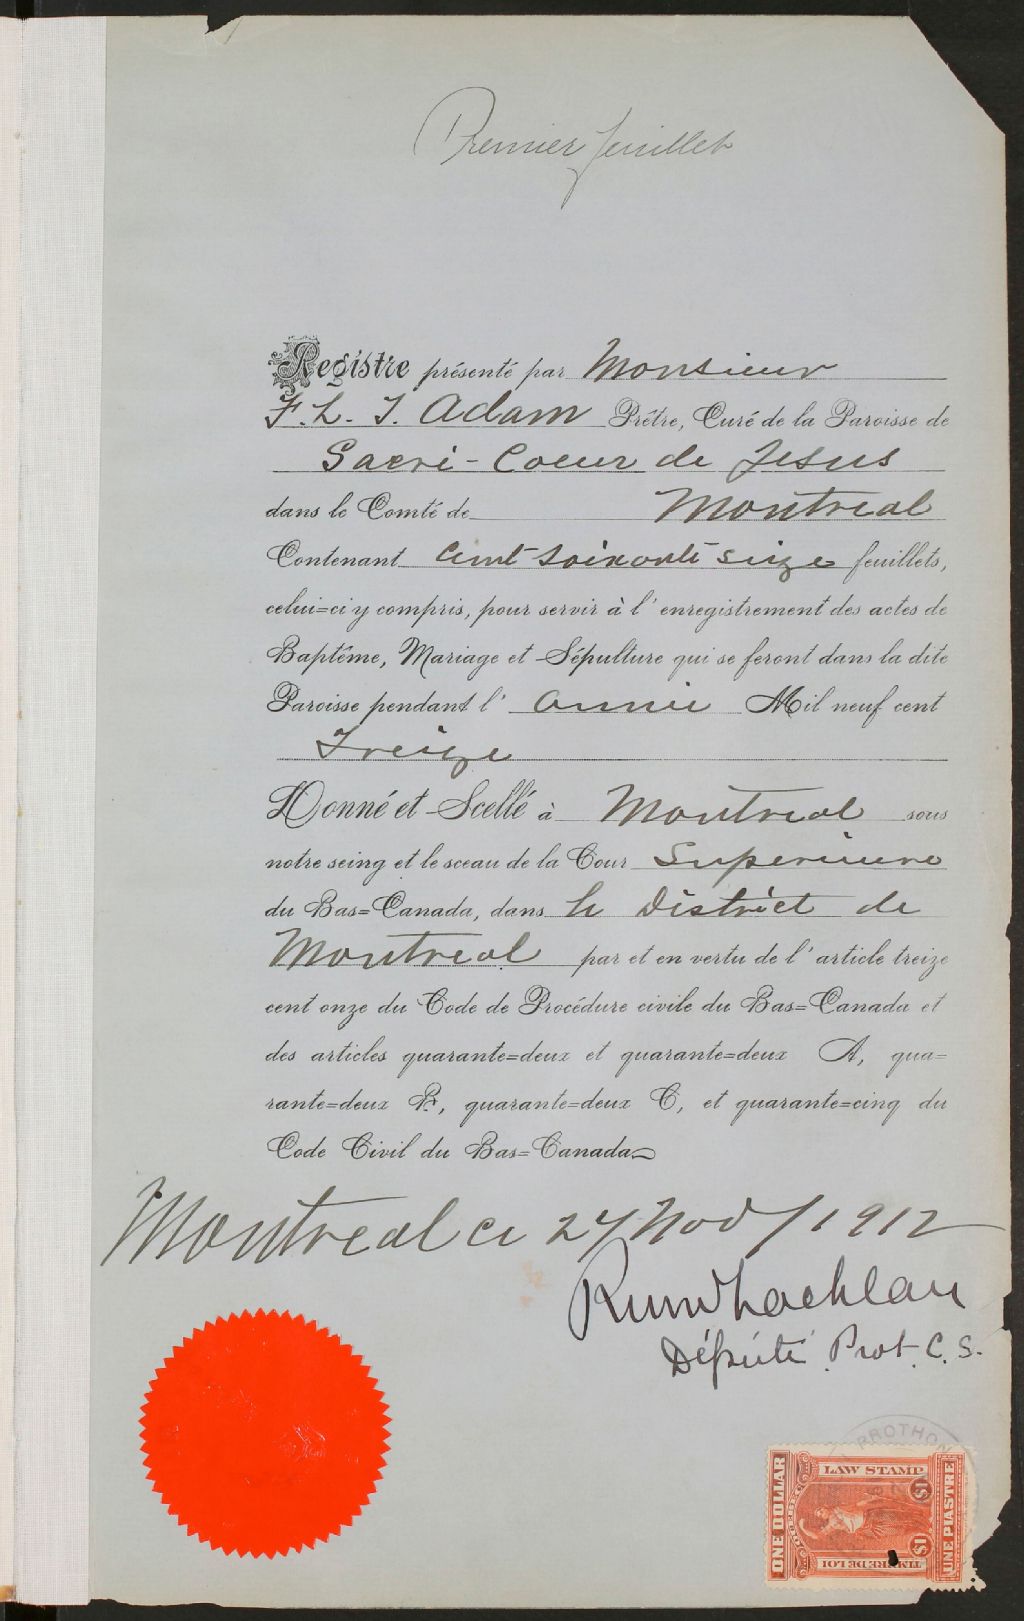 Premier feuillet
Registre présenté par Monsieur
F. L. T. Adam Prêtre, Curé de la Paroisse de
Sacré-Coeur de Jesus
dans le Comté de Montreal
Contenant Cent soixante seize feuillets,
celui=ci y compris, pour servir à l'enregistrement des actes de
Baptême, Mariage et Sépulture qui se feront dans la dite
Paroisse pendant l' année Mil neuf cent
Treize
Donné et Scellé à Montreal sous
notre seing et le sceau de la Cour Superieure
du Bas=Canada, dans le District de
Montreal par et en vertu de l'article treize
cent onze du Code de Procédure civile du Bas=Canada et
des articles quarante=deux et quarante=deux A, qua=
rante=deux B, quarante=deux C, et quarante=cinq du
Code Civil du Bas=Canada
Montreal ce 27 Nov / 1912
Député Prot. C. S.
PROTHON
ONE DOLLAR
LAW STAMP
QUEBEC
$1
$1
TIMBRE DE LOI
UNE PIASTRE